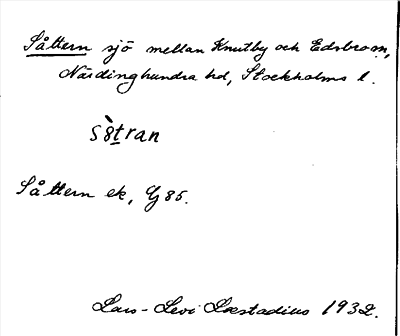 Såttern sjö mellan Knutby och Edsbrom,
Närdinghundra hd, Stockholms l.
s8̀tran
Såttern ek, Gj 85.
Lars-Levi Læstadius 1932.